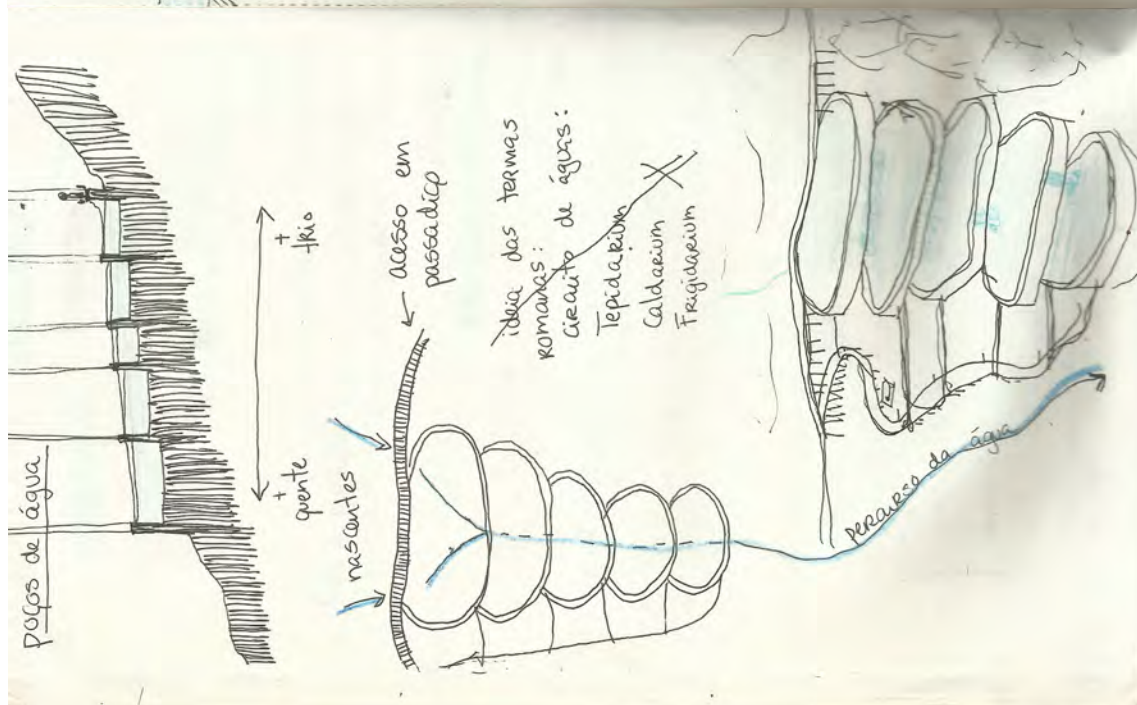 poços de água
+
quente
+
frio
nascentes
← acesso em
passadiço
ideia das termas
romanas:
circuito de águas:
Tepidarium
Caldarium
Frigidarium
percurso da água